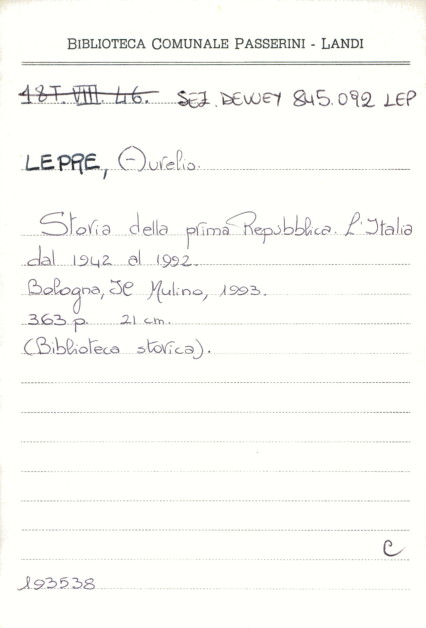 BIBLIOTECA COMUNALE PASSERINI - LANDI
18T. VIII. 46. SEZ. DEWEY 845.092 LEP
LEPRE, Aurelio.
Storia della prima Repubblica. L'Italia
dal 1942 al 1992.
Bologna, Il Mulino, 1993.
363 p. 21 cm.
(Biblioteca storica).
C
193538